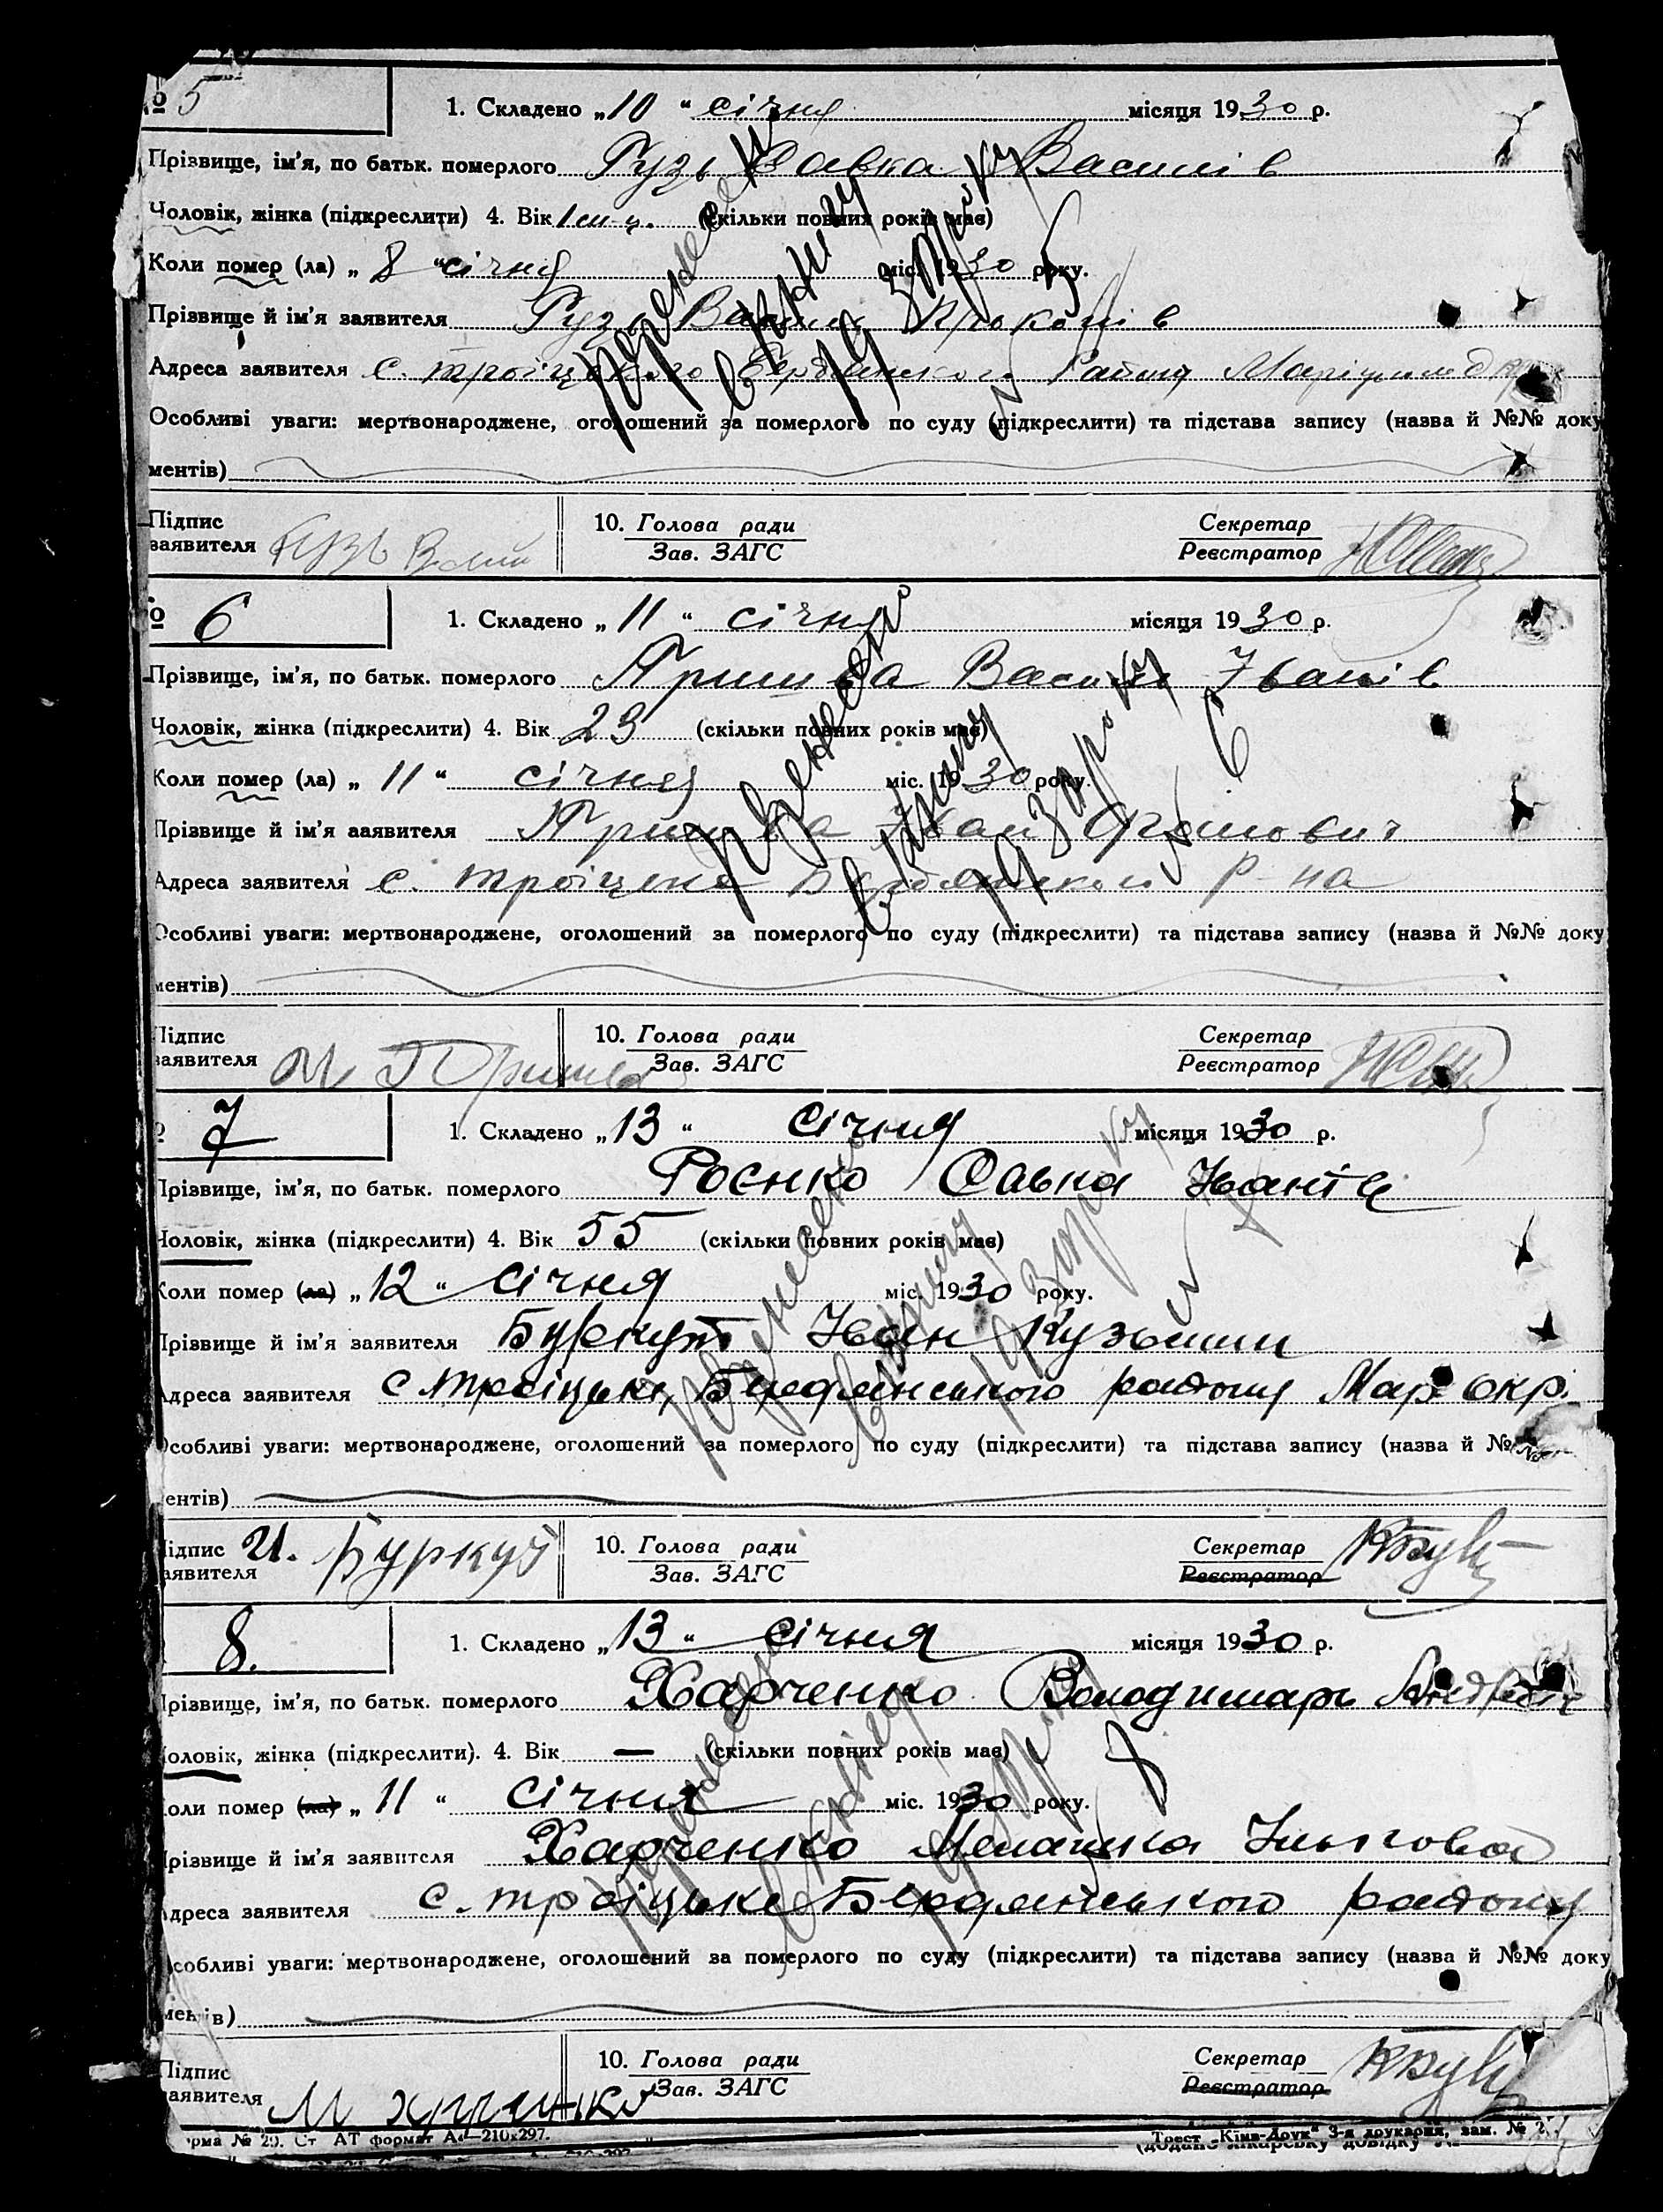 № 5
1. Складено „10“ січня місяця 1930 р.
Прізвище, ім'я, по батьк. померлого Гузь Савка Василів
Чоловік, жінка (підкреслити) 4. Вік 1 (скільки повних років має)
Коли помер (ла) „8“ січня міс. 1930 року.
Прізвище й ім'я заявителя Гузь Василь Прокопів
Адреса заявителя с. троіцького Бердянського Району
Особливі уваги: мертвонароджене, оголошений за померлого по суду (підкреслити) та підстава запису (назва й №№ доку
ментів)
Підпис заявителя Гузь
10. Голова ради
Зав. ЗАГС
Секретар
Реєстратор
Перенесено в книгу 19 30 року № 5
№ 6
1. Складено „11“ січня місяця 1930 р.
Прізвище, ім'я, по батьк. померлого Василь Іванів
Чоловік, жінка (підкреслити) 4. Вік 23 (скільки повних років має)
Коли помер (ла) „11“ січня міс. 1930 року.
Прізвище й ім'я заявителя Іван
Адреса заявителя с. троіцьке Бердянського р-на
Особливі уваги: мертвонароджене, оголошений за померлого по суду (підкреслити) та підстава запису (назва й №№ доку
ментів)
Підпис
заявителя
10. Голова ради
Зав. ЗАГС
Секретар
Реєстратор
Перенесено в книгу 19 30 року № 6
7
1. Складено „13“ січня місяця 1930 р.
Прізвище, ім'я, по батьк. померлого Роєнко Савка Іванів
Чоловік, жінка (підкреслити) 4. Вік 55 (скільки повних років має)
Коли помер (ла) „12“ січня міс. 1930 року.
Прізвище й ім'я заявителя Буркут Іван Кузьмич
Адреса заявителя с троіцьке, Бердянського району Мар окр.
Особливі уваги: мертвонароджене, оголошений за померлого по суду (підкреслити) та підстава запису (назва й №
ентів)
Підпис
заявителя И. Буркут
10. Голова ради
Зав. ЗАГС
Секретар
Реєстратор
Перенесено в книгу 19 30 року № 7
8.
1. Складено „13“ січня місяця 1930 р.
Прізвище, ім'я, по батьк. померлого Харченко Володимарь
Чоловік, жінка (підкреслити). 4. Вік — (скільки повних років має)
Коли помер (ла) „11“ січня міс. 1930 року.
Прізвище й ім'я заявителя Харченко Мелашка
Адреса заявителя с. троіцьке Бердянського району
Особливі уваги: мертвонароджене, оголошений за померлого по суду (підкреслити) та підстава запису (назва й №№ доку
ментів)
Підпис
заявителя М
10. Голова ради
Зав. ЗАГС
Секретар
Реєстратор
Перенесено в книгу 19 30 року № 8
рма № 29. Ст АТ формат А4—210x297.
Трест „Київ-Друк“ 3-я друкарня, зам. №
(додано лікарську довідку №